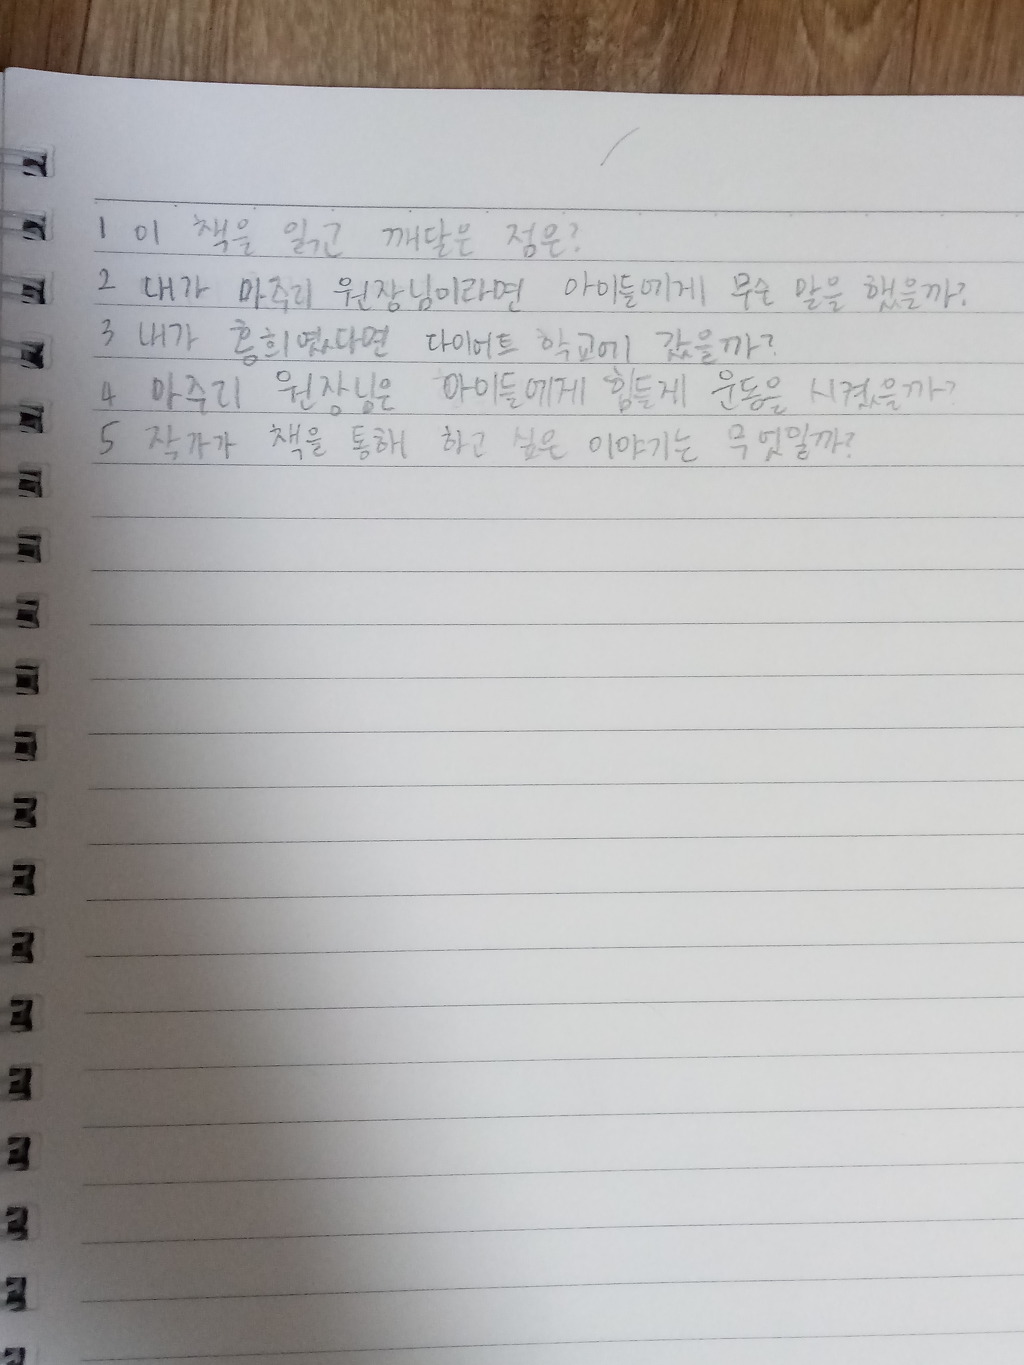 1 이 책을 읽고 깨달은 점은?
2 내가 마주리 원장님이라면 아이들에게 무슨 말을 했을까?
3 내가 홍희였다면 다이어트 학교에 갔을까?
4 마주리 원장님은 아이들에게 힘들게 운동을 시켰을까?
5 작가가 책을 통해 하고 싶은 이야기는 무엇일까?